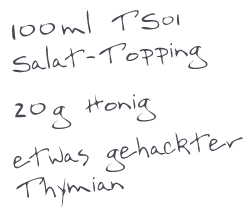 100ml TSOI
Salat-Topping
20g Honig
etwas gehackter
Thymian